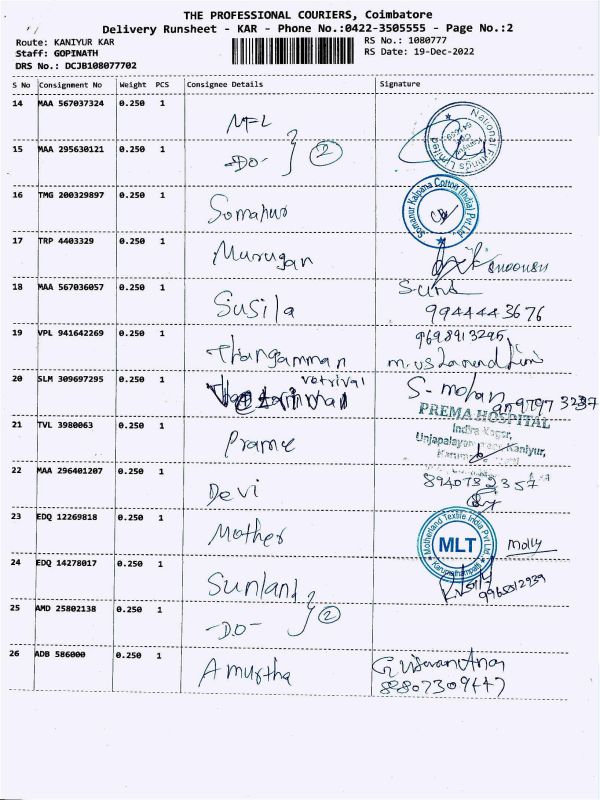 THE PROFESSIONAL COURIERS, Coimbatore
Delivery Runsheet - KAR - Phone No.:0422-3505555 - Page No.:2
Route: KANIYUR KAR
RS No.: 1080777
Staff: GOPINATH
RS Date: 19-Dec-2022
DRS No.: DCJB108077702
S No Consignment No Weight PCS Consignee Details Signature
14 MAA 567037324 0.250 1 MFL
National Fittings Limited
15 MAA 295630121 0.250 1 -DO- 2
16 TMG 200329897 0.250 1 Somanur
Somanur Kalpana Cotton (India) Pvt.Ltd.
17 TRP 4403329 0.250 1 Murugan
18 MAA 567036057 0.250 1 Susila
9944443676
19 VPL 941642269 0.250 1 Thangamman
9698913295
20 SLM 309697295 0.250 1 vetrival S-mohan
21 TVL 3980063 0.250 1 Prame
PREMA HOSPITAL
Indira Nagar,
Kaniyur,
22 MAA 296401207 0.250 1 Devi
23 EDQ 12269818 0.250 1 Mother
Motherland Textile India Pvt Ltd
MLT
Karumathampatti
Molly
24 EDQ 14278017 0.250 1 Sunland
25 AMD 25802138 0.250 1 -DO- 2
26 ADB 586000 0.250 1 Amurtha
88807309447